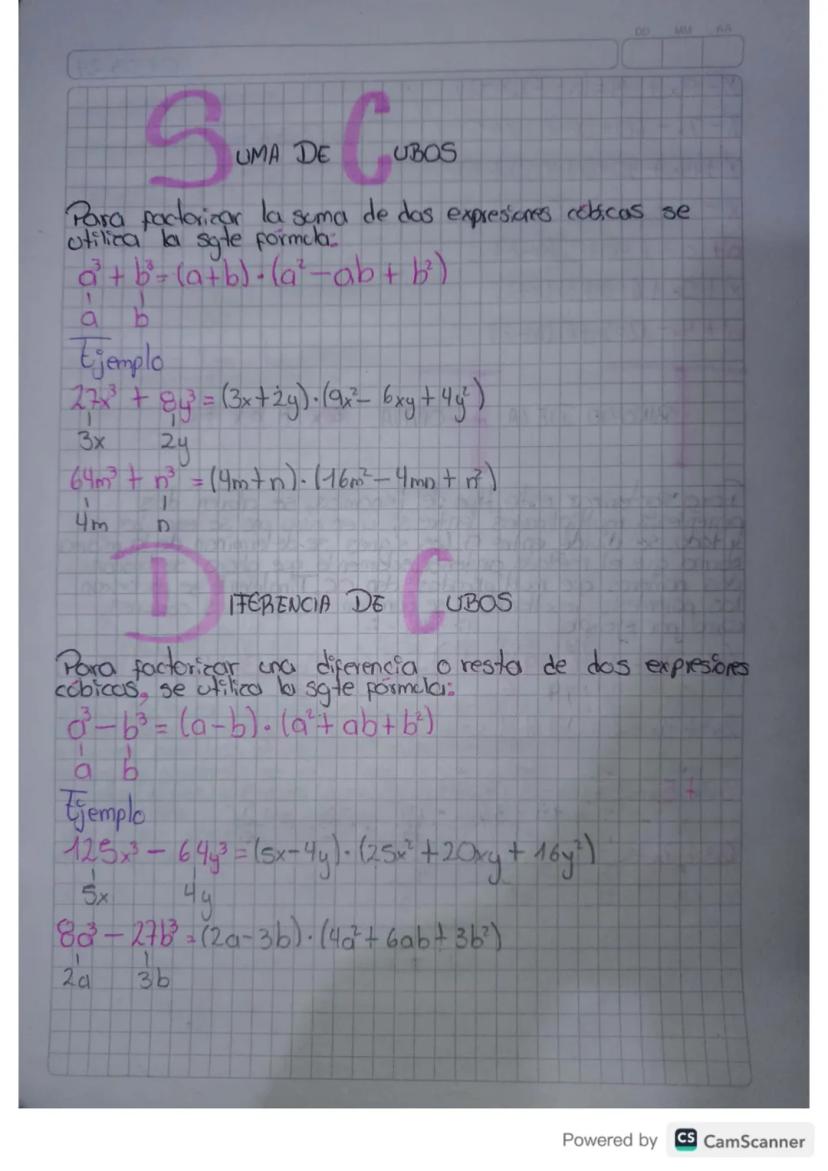 DD MM AA
SUMA DE CUBOS
Para factorizar la suma de dos expresiones cúbicas se
utiliza la sgte fórmula:
a³ + b³ = (a+b)·(a² - ab + b²)
a b
Ejemplo
27x³ + 8y³ = (3x+2y)·(9x² - 6xy + 4y²)
3x 2y
64m³ + n³ = (4m+n)·(16m² - 4mn + n²)
4m n
DIFERENCIA DE CUBOS
Para factorizar una diferencia o resta de dos expresiones
cúbicas, se utiliza la sgte fórmula:
a³ - b³ = (a-b)·(a² + ab + b²)
a b
Ejemplo
125x³ - 64y³ = (5x-4y)·(25x² + 20xy + 16y²)
5x 4y
8a³ - 27b³ = (2a-3b)·(4a² + 6ab + 3b²)
2a 3b
Powered by CS CamScanner